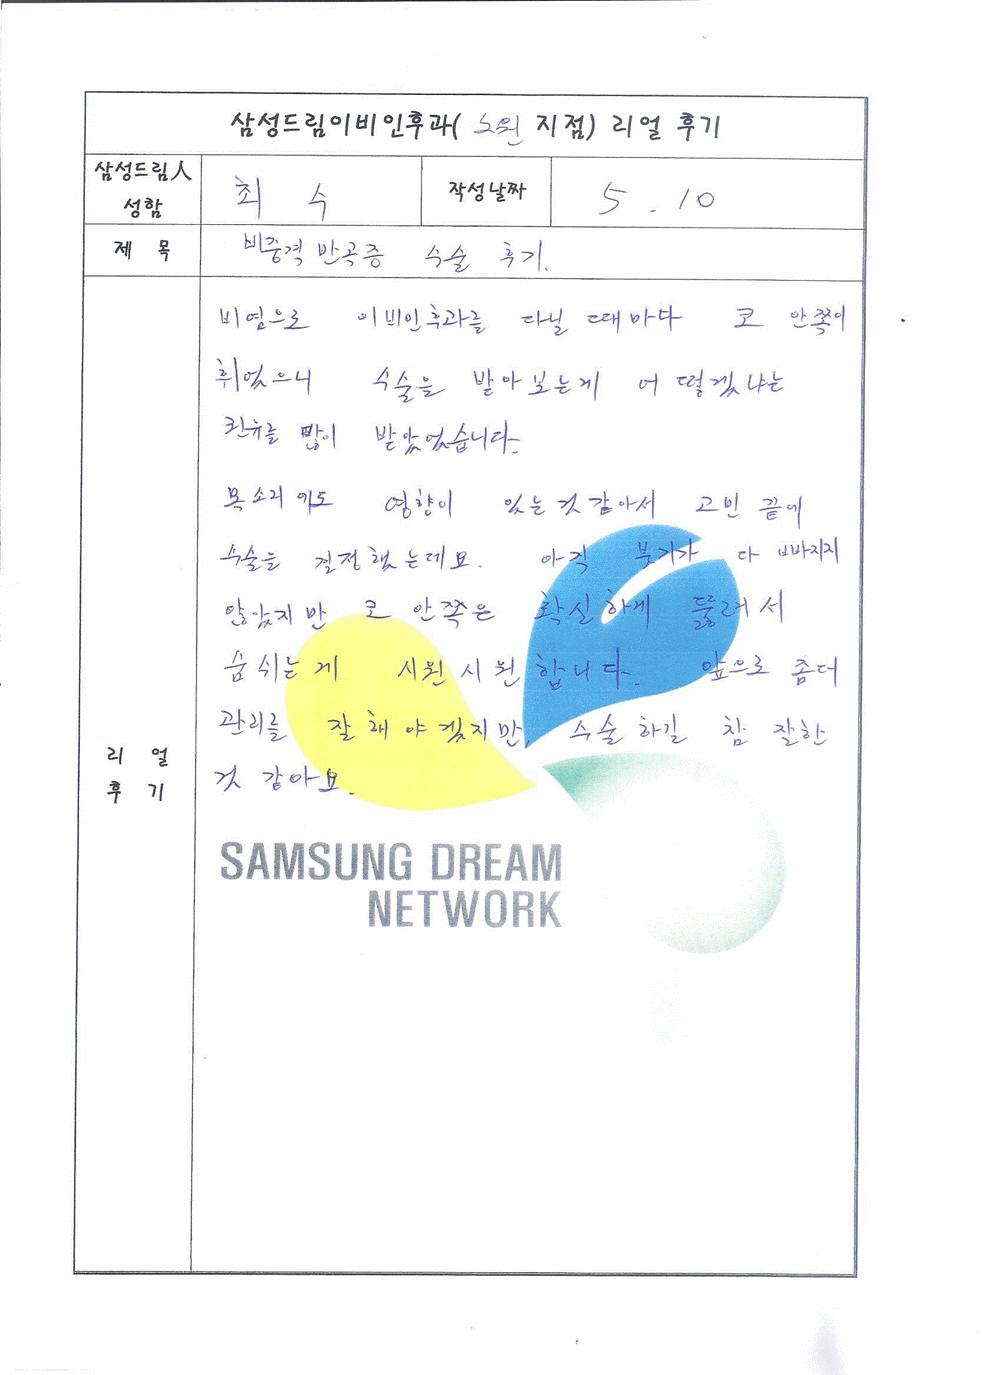 삼성드림이비인후과( 노원 지점) 리얼 후기
삼성드림人 성함
최 수
작성날짜
5.10
제 목
비중격 만곡증 수술 후기.
리 얼 후 기
비염으로 이비인후과를 다닐 때마다 코 안쪽이
휘었으니 수술을 받아보는게 어떻겠냐는
권유를 많이 받았었습니다.
목소리에도 영향이 있는것 같아서 고민 끝에
수술을 결정했는데요. 아직 붓기가 다 빠지지
않았지만 코 안쪽은 확실하게 뚫려서
숨쉬는게 시원시원합니다. 앞으로 좀더
관리를 잘해야겠지만, 수술하길 참 잘한
것 같아요.
SAMSUNG DREAM
NETWORK